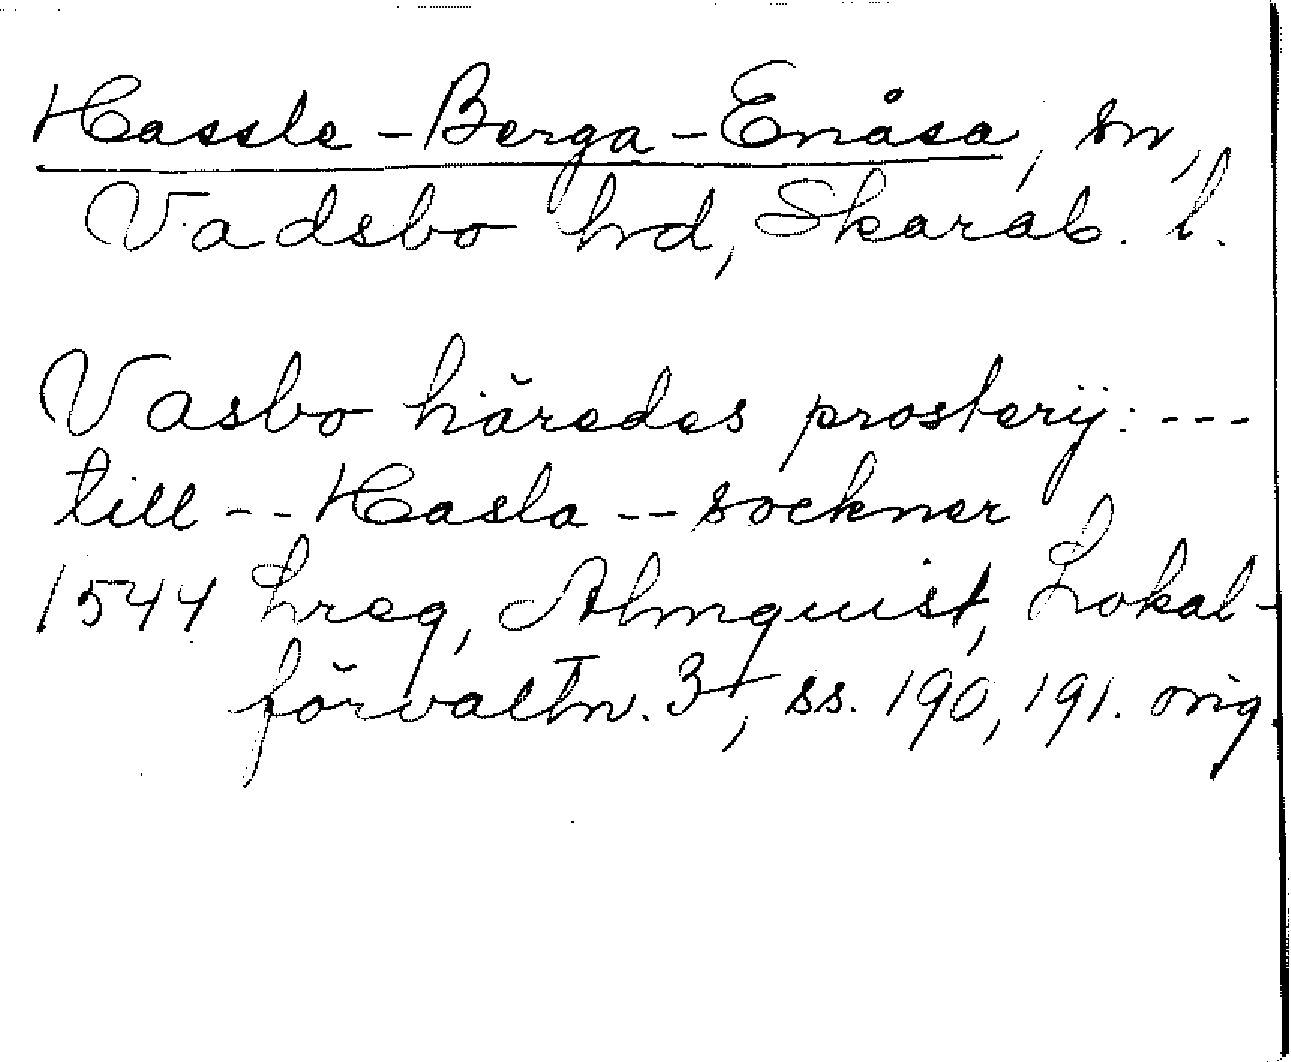 Hassle-Berga-Enåsa, sn,
Vadsbo hd, Skarab. l.
Vasbo häredes prosterij: ---
till -- Hasla -- sockner
1544 Lreg, Almquist, Lokal-
förvaltn. 3, ss. 190, 191. orig.